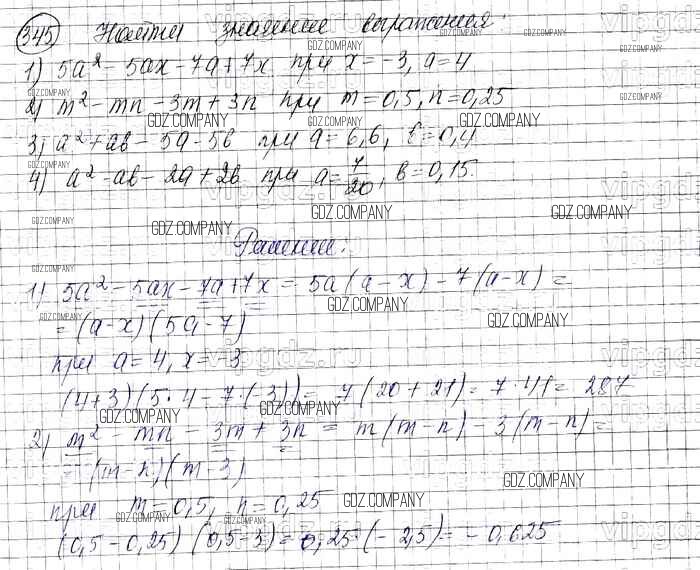 345 Найти значение выражения:
1) 5a² - 5ax - 7a + 7x при x = -3, a = 4
2) m² - mn - 3m + 3n при m = 0,5, n = 0,25
3) a² + ab - 5a - 5b при a = 6,6, b = 0,4
4) a² - ab - 2a + 2b при a = 7/20, b = 0,15.
Решение.
1) 5a² - 5ax - 7a + 7x = 5a(a - x) - 7(a - x) =
= (a - x)(5a - 7)
при a = 4, x = -3
(4+3)(5·4 - 7·(-3)) = 7(20 + 21) = 7·41 = 287
2) m² - mn - 3m + 3n = m(m - n) - 3(m - n) =
= (m - n)(m - 3)
при m = 0,5, n = 0,25
(0,5 - 0,25)(0,5 - 3) = 0,25·(-2,5) = -0,625